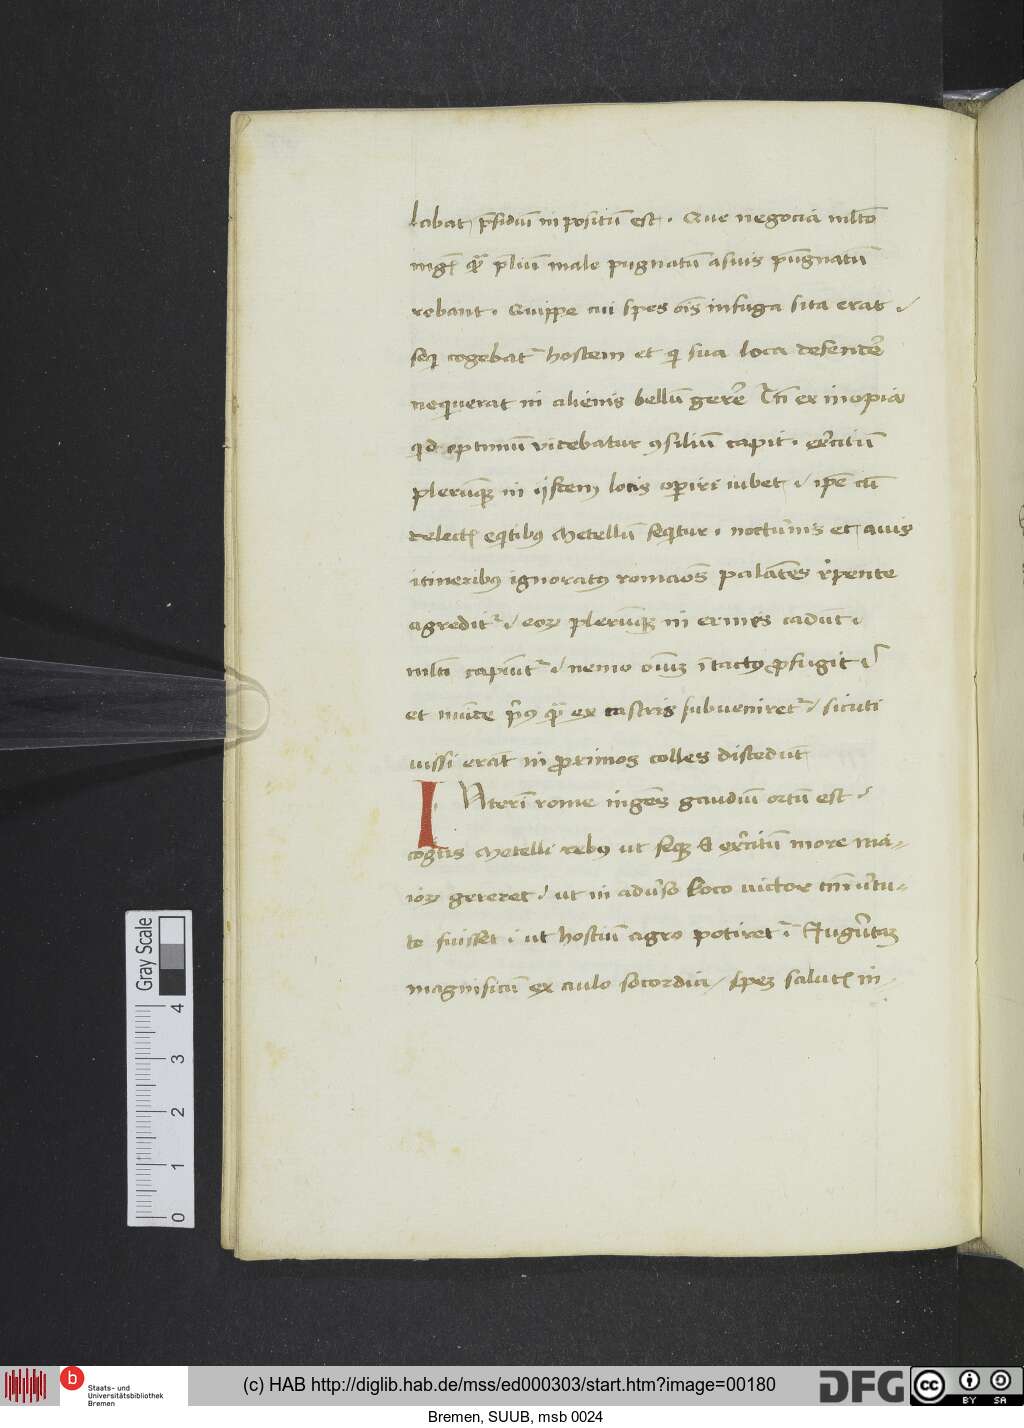 labat / p̄sidiū in positū est. Que negocia mlto
mgꝭ qͣ p̄liū male pugnatū a suis
rebant. Quippe cui spes oīs in fuga sita erat /
seq̄ cogebatᷣ hostem et q̄ sua loca defendeᷣ
nequerat in alienis bellū gereᷣ Tn̄ ex inopia
qd optimū videbatur ꝯsiliū capit. exᷣcitū
plerūqꝫ in ijsdem locis opiri iubet / ipē cū
delectꝭ eqͥtibꝰ Metellū seqͥtur. nocturnis et auiis
itineribꝰ ignoratꝰ romāos palātes rᷣpente
agreditᷣ / eoꝝ plerūqꝫ in ermis cadūt /
mlti capiūtᷣ / nemo oīuꝫ ītactꝰ ꝓfugit /
et inde pͥꝰ qͣ ex castris subueniretᷣ / sicuti
iussi erāt in ꝓximos colles discedūt
INterī rome ingēs gaudiū ortū est /
cogītis Metelli rebꝰ ut seqꝫ & exᷣcitū more ma-
ioꝝ gereret / ut in aduᷣso Loco victor tn̄ uᷣtu-
te fuisset / ut hostiū agro potiretᷣ Iuguᷣtaꝫ
magnificū ex aulo socordia / spez salutꝭ in
Gray Scale
4
3
2
1
0
b
Staats- und
Universitätsbibliothek
Bremen
(c) HAB http://diglib.hab.de/mss/ed000303/start.htm?image=00180
DFG
cc
BY SA
Bremen, SUUB, msb 0024